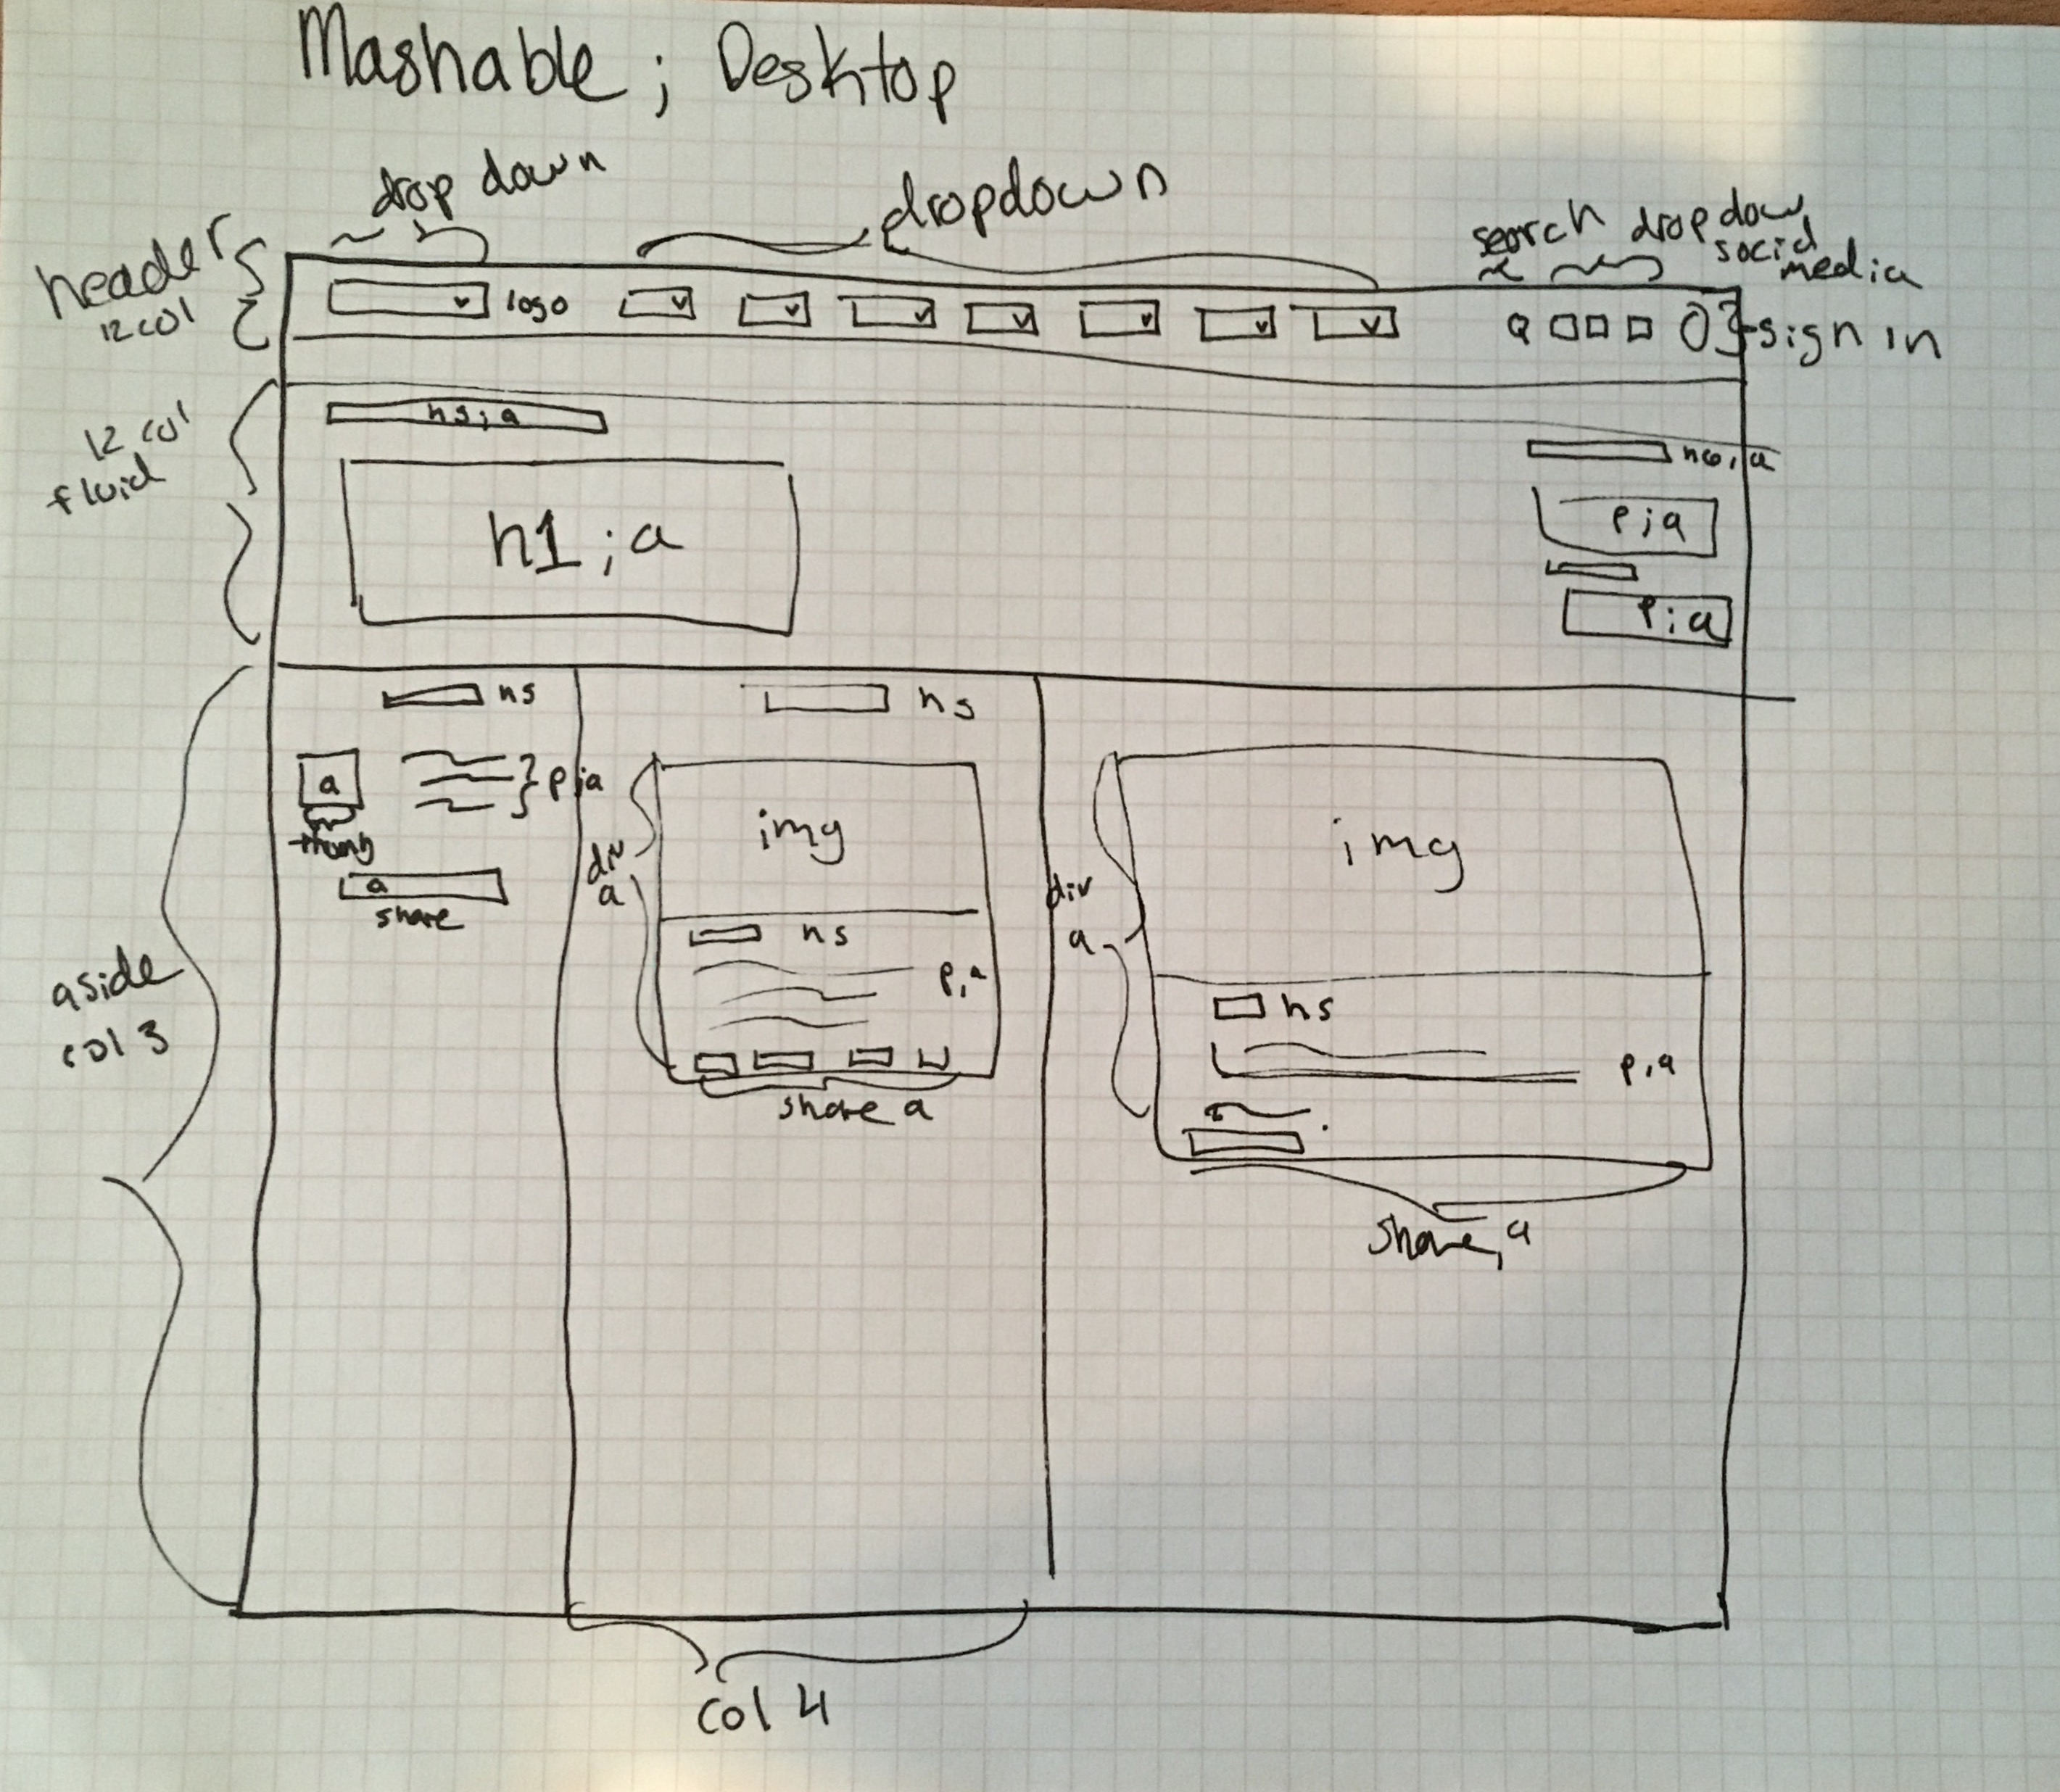 Mashable ; Desktop
drop down
dropdown
search
dropdow
social
media
header
12 col
logo
Q
sign in
12 col
fluid
h5;a
h6,a
h1;a
p;a
p;a
h5
h5
a
p;a
thumb
a
share
img
div
a
h5
p,a
share a
img
div
a
h5
p,a
share, a
aside
col 3
col 4